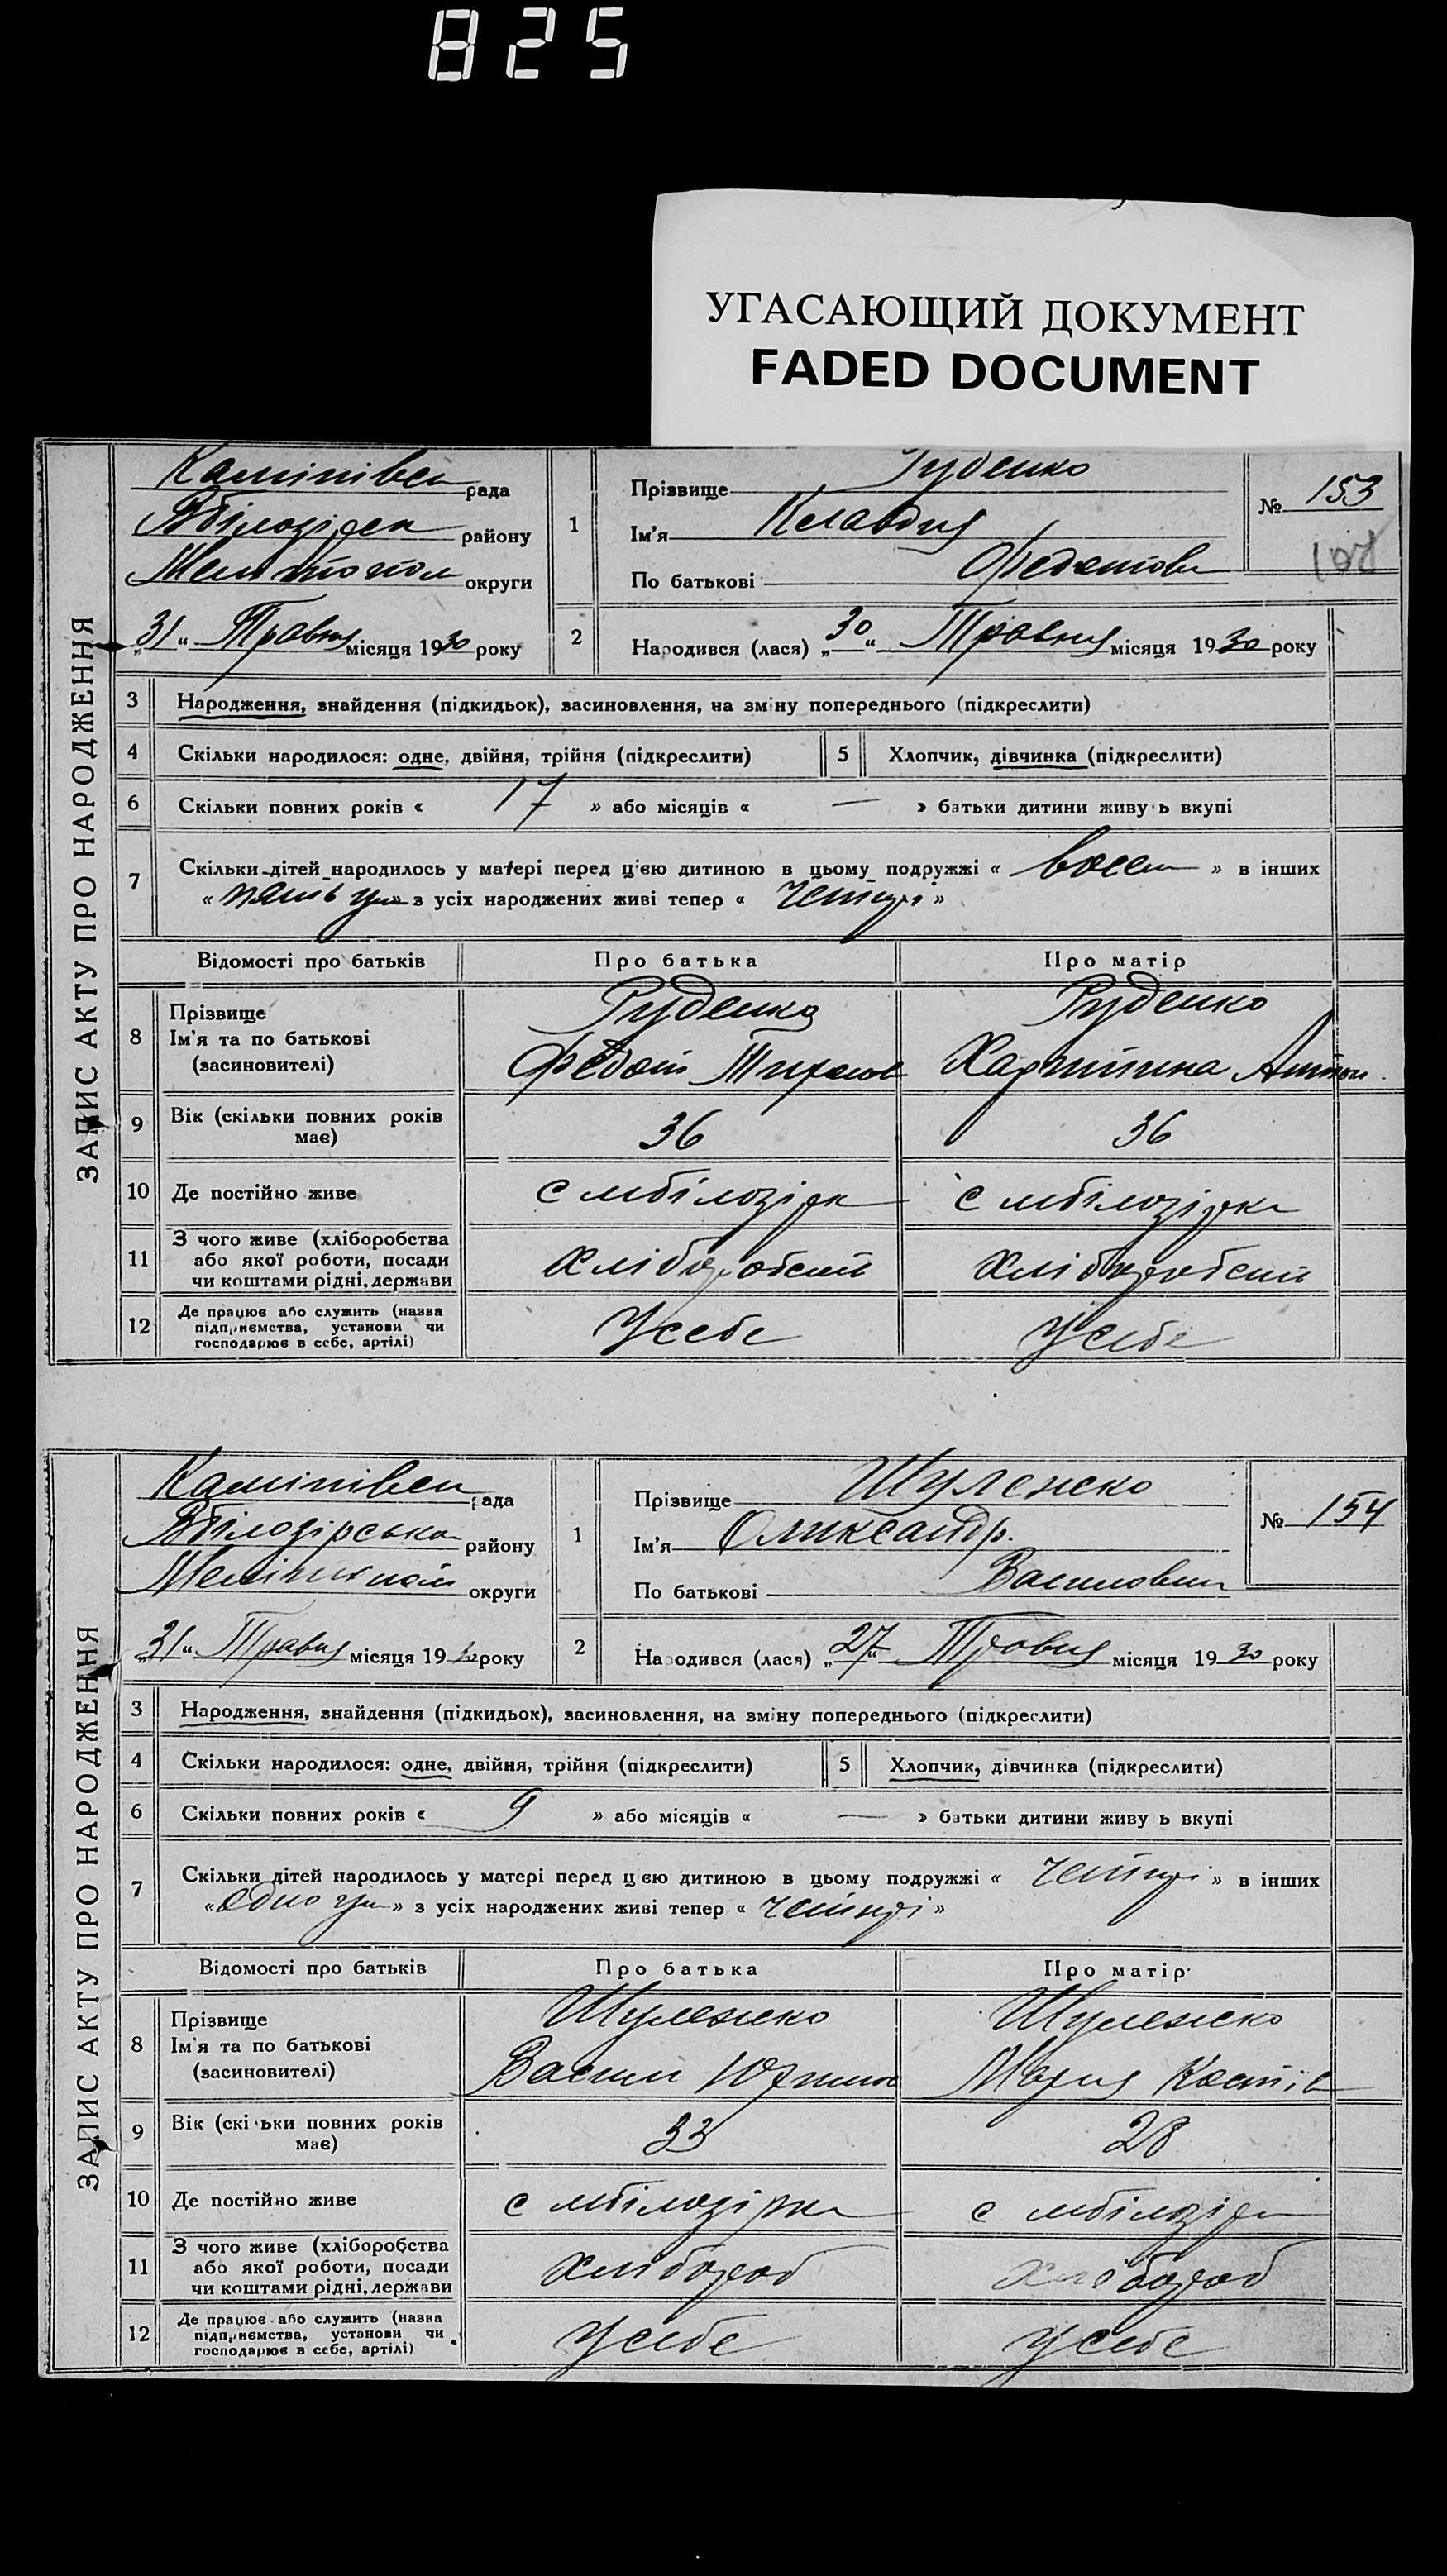 825
УГАСАЮЩИЙ ДОКУМЕНТ
FADED DOCUMENT
ЗАПИС АКТУ ПРО НАРОДЖЕННЯ
рада
району
округи
„31“ Травня місяця 1930 року
1
Прізвище Руденко
Ім'я Клавдия
По батькові Федотовн
№ 153
2
Народився (лася) „30“ Травня місяця 1930 року
3 Народження, знайдення (підкидьок), засиновлення, на зміну попереднього (підкреслити)
4 Скільки народилося: одне, двійня, трійня (підкреслити)
5 Хлопчик, дівчинка (підкреслити)
6 Скільки повних років « 17 » або місяців « — » батьки дитини живуть вкупі
7 Скільки дітей народилось у матері перед цією дитиною в цьому подружжі « восем » в інших
« » з усіх народжених живі тепер « четирі »
Відомості про батьків Про батька Про матір
8 Прізвище Руденко Руденко
Ім'я та по батькові Федот Харитина Антон.
(засиновителі)
9 Вік (скільки повних років має) 36 36
10 Де постійно живе с мбілозірк с мбілозірка
11 З чого живе (хліборобства
або якої роботи, посади
чи коштами рідні, держави
12 Де працює або служить (назва
підприємства, установи чи
господарює в себе, артілі) У себе У себе
ЗАПИС АКТУ ПРО НАРОДЖЕННЯ
рада
району
округи
„31“ Травня місяця 1930 року
1
Прізвище Шуленко
Ім'я Олександр.
По батькові Василовин
№ 154
2
Народився (лася) „27“ Травня місяця 1930 року
3 Народження, знайдення (підкидьок), засиновлення, на зміну попереднього (підкреслити)
4 Скільки народилося: одне, двійня, трійня (підкреслити)
5 Хлопчик, дівчинка (підкреслити)
6 Скільки повних років « 9 » або місяців « — » батьки дитини живуть вкупі
7 Скільки дітей народилось у матері перед цією дитиною в цьому подружжі « четирі » в інших
« одно » з усіх народжених живі тепер « четирі »
Відомості про батьків Про батька Про матір
8 Прізвище Шуленко Шуленко
Ім'я та по батькові Васил Мария
(засиновителі)
9 Вік (скільки повних років має) 33 28
10 Де постійно живе с мбілозірка с мбілозірк
11 З чого живе (хліборобства
або якої роботи, посади
чи коштами рідні, держави Хлібороб Хлібороб
12 Де працює або служить (назва
підприємства, установи чи
господарює в себе, артілі) У себе У себе